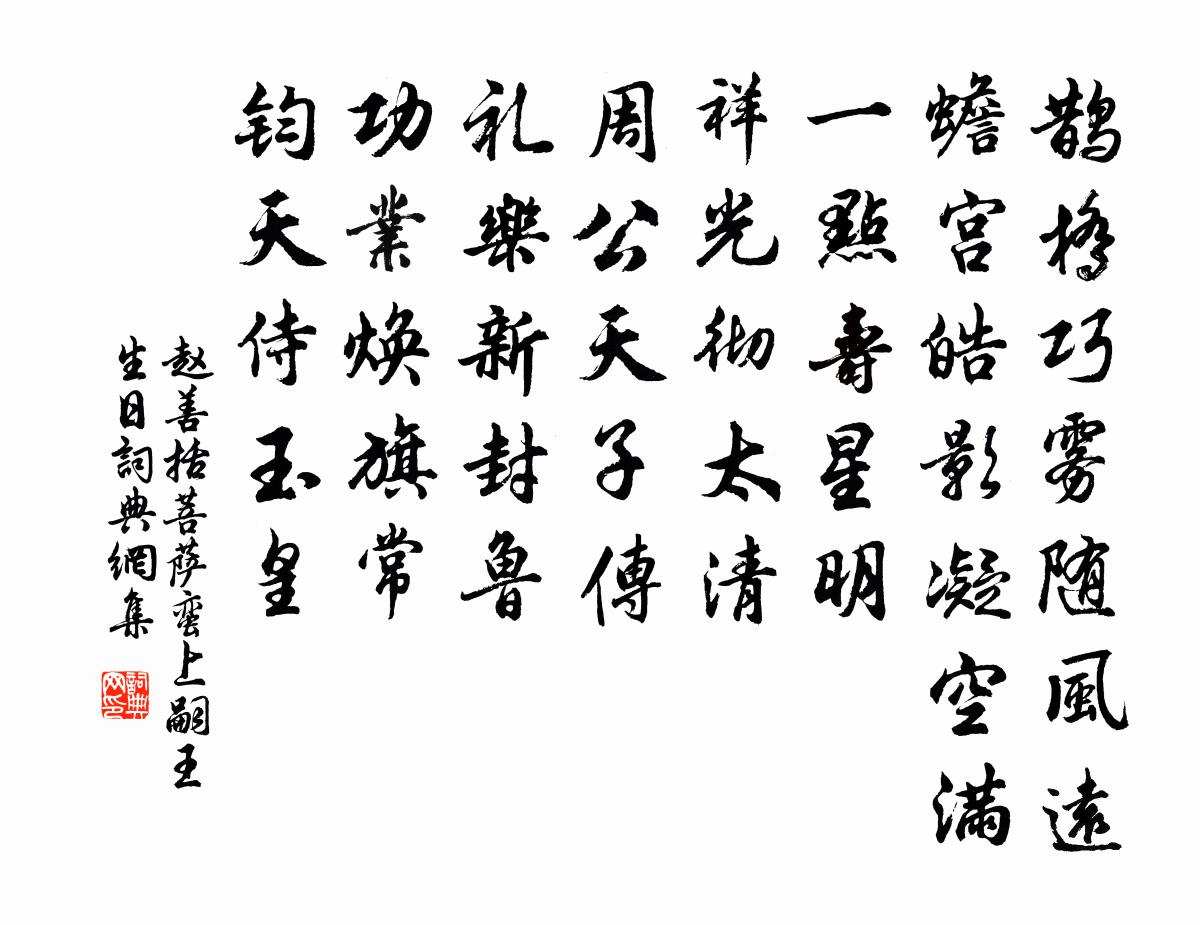 鹊橋巧雾随風遠
蟾宮皓影凝空滿
一點壽星明
祥光彻太清
周公天子傳
礼樂新封魯
功業焕旗常
钧天侍玉皇
赵善括菩萨蛮上嗣王
生日詞典網集
詞典
网印